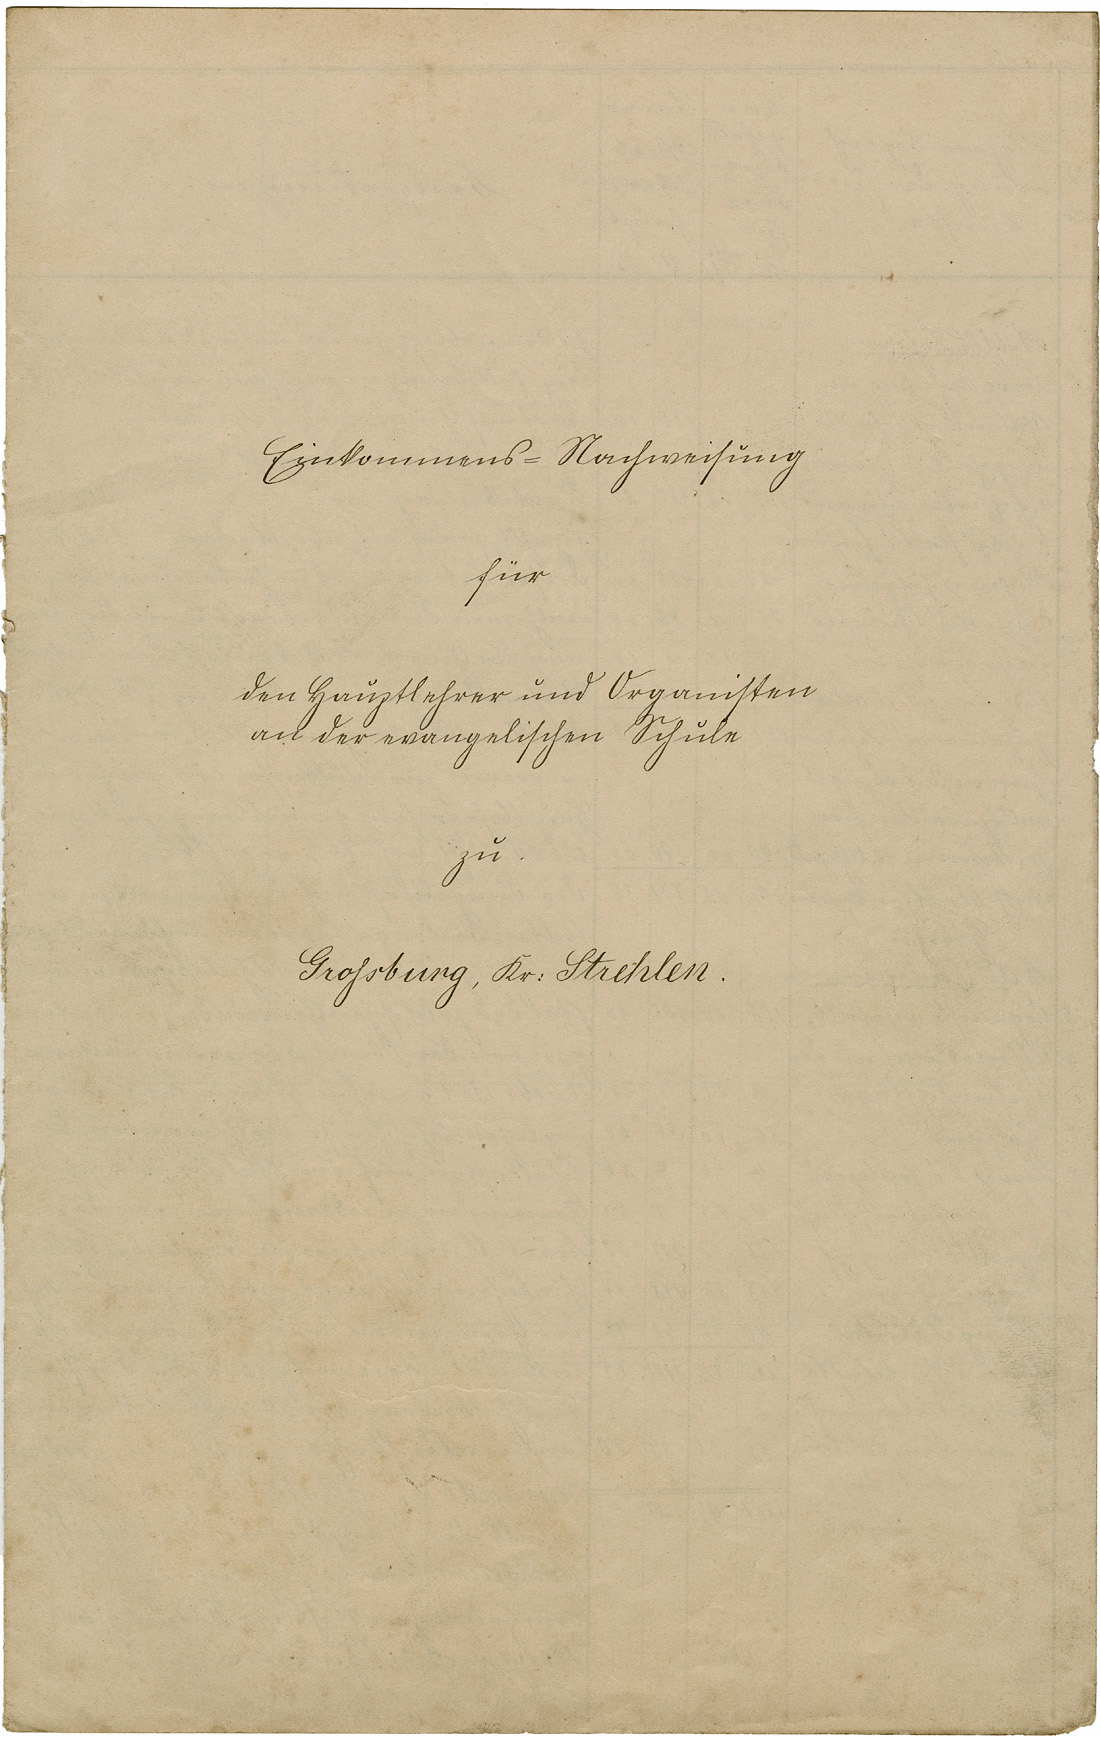 Einkommens=Nachweisung
für
den Hauptlehrer und Organisten
an der evangelischen Schule
zu.
Grossburg, Kr: Strehlen.